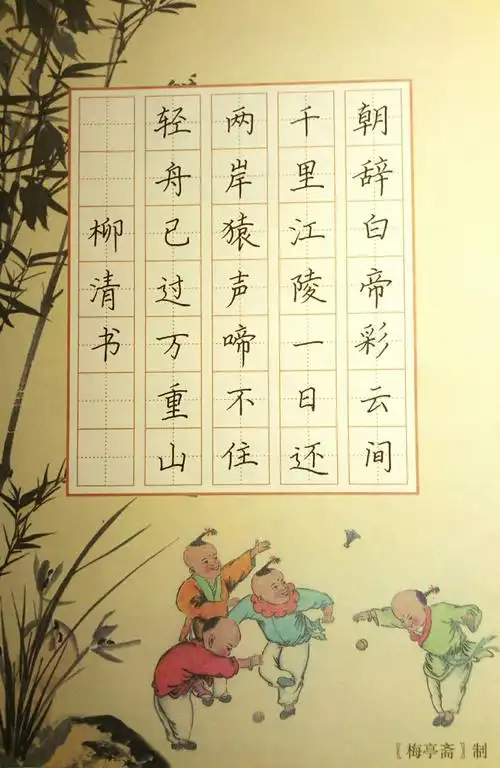 朝辞白帝彩云间
千里江陵一日还
两岸猿声啼不住
轻舟已过万重山
柳清书
〖梅亭斋〗制